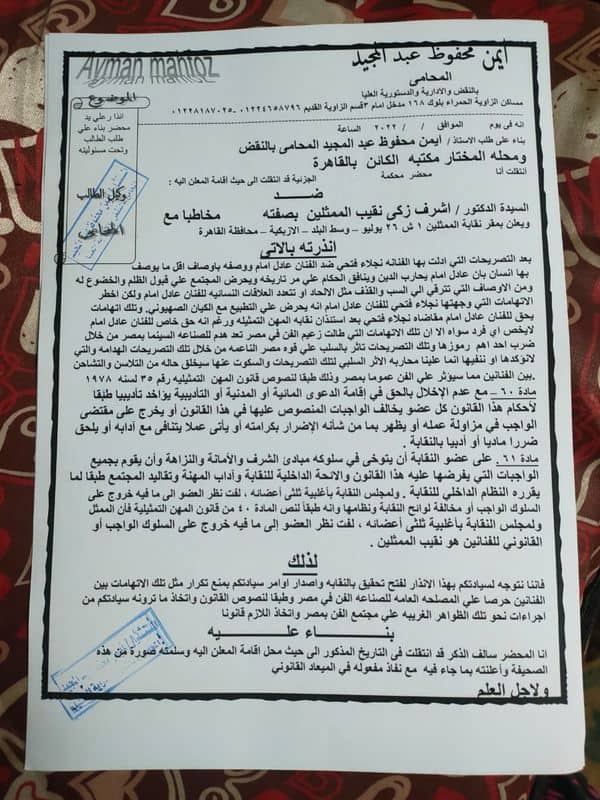 أيمن محفوظ عبد المجيد
Ayman mahfoz
المحامى
بالنقض والادارية والدستورية العليا
مساكن الزاوية الحمراء بلوك ١٦٨ مدخل امام ٣ قسم الزاوية القديم ٠١٢٢٤٦٥٨٧٩٦ -٠١٢٢٨١٨٧٠٢٥
الموضوع
انذار علي يد
محضر بناء علي
طلب الطالب
وتحت مسئوليته
وكيل الطالب
المحامي
انه فى يوم الموافق / / ٢٠٢٢ الساعة
بناء على طلب الاستاذ / أيمن محفوظ عبد المجيد المحامى بالنقض
ومحله المختار مكتبه الكائن بالقاهرة
انتقلت أنا محضر محكمة الجزئية قد انتقلت الى حيث اقامة المعلن اليه :
ضد
السيدة الدكتور / أشرف زكى نقيب الممثلين بصفته مخاطبا مع
ويعلن بمقر نقابة الممثلين ١ ش ٢٦ يوليو – وسط البلد – الازبكية – محافظة القاهرة
أنذرته بالاتي
بعد التصريحات التي ادلت بها الفنانه نجلاء فتحي ضد الفنان عادل امام ووصفه باوصاف اقل ما يوصف
بها انسان بان عادل امام يحارب الدين وينافق الحكام علي مر تاريخه ويحرض المجتمع علي قبول الظلم والخضوع له
ومن الاوصاف التي ترقي الي السب والقذف مثل الالحاد او تتعدد العلاقات النسائيه للفنان عادل امام ولكن اخطر
الاتهامات التي وجهتها نجلاء فتحي للفنان عادل امام انه يحرض علي التطبيع مع الكيان الصهيوني. وتلك اتهامات
يحق للفنان عادل امام مقاضاه نجلاء فتحي بعد استئذان نقابه المهن التمثيليه ورغم انه حق خاص للفنان عادل امام
لايخص اي فرد سواه الا ان تلك الاتهامات التي طالت زعيم الفن في مصر تعد هدم للصناعه السينما بمصر من خلال
ضرب احد اهم رموزها وتلك التصريحات تاثر بالسلب علي قوه مصر الناعمه من خلال تلك التصريحات الهدامه والتي
لانؤكدها او ننفيها انما علينا محاربه الاثر السلبي لتلك التصريحات والسكوت عنها سيخلق حاله من التلاسن والتشاحن
بين الفنانين مما سيوثر علي الفن عموما بمصر وذلك طبقا لنصوص قانون المهن التمثيليه رقم ٣٥ لسنه ١٩٧٨.
مادة ٦٠ – مع عدم الإخلال بالحق في إقامة الدعوى المائية أو المدنية أو التأديبية يؤاخد تأديبيا طبقا
لأحكام هذا القانون كل عضو يخالف الواجبات المنصوص عليها في هذا القانون أو يخرج على مقتضى
الواجب في مزاولة عمله أو يظهر بما من شأنه الإضرار بكرامته أو يأتى عملا يتنافى مع آدابه أو يلحق
ضررا ماديا أو أدبيا بالنقابة .
مادة ٦١ . على عضو النقابة أن يتوخى في سلوكه مبادئ الشرف والأمانة والنزاهة وأن يقوم بجميع
الواجبات التي يفرضها عليه هذا القانون والائحة الداخلية للنقابة وآداب المهنة وتقاليد المجتمع طبقا لما
يقرره النظام الداخلي للنقابة . ولمجلس النقابة بأغلبية ثلثى أعضائه ، لفت نظر العضو الى ما فيه خروج على
السلوك الواجب أو مخالفة لوائح النقابة ونظامها وانه طبقا لنص المادة ٤٠ من قانون المهن التمثيلية فأن الممثل
ولمجلس النقابة بأغلبية ثلثى أعضائه ، لفت نظر العضو إلى ما فيه خروج على السلوك الواجب أو
القانوني للفنانين هو نقيب الممثلين .
لذلك
فاننا نتوجه لسيادتكم بهذا الانذار لفتح تحقيق بالنقابه واصدار اوامر سيادتكم بمنع تكرار مثل تلك الاتهامات بين
الفنانين حرصا علي المصلحه العامه للصناعه الفن في مصر وطبقا لنصوص القانون واتخاذ ما ترونه سيادتكم من
اجراءات نحو تلك الظواهر الغريبه علي مجتمع الفن بمصر واتخاذ اللازم قانونا
بناء عليه
انا المحضر سالف الذكر قد انتقلت في التاريخ المذكور الى حيث محل اقامة المعلن اليه وسلمته صورة من هذه
الصحيفة وأعلنته بما جاء فيه مع نفاذ مفعوله في الميعاد القانوني
ولاجل العلم